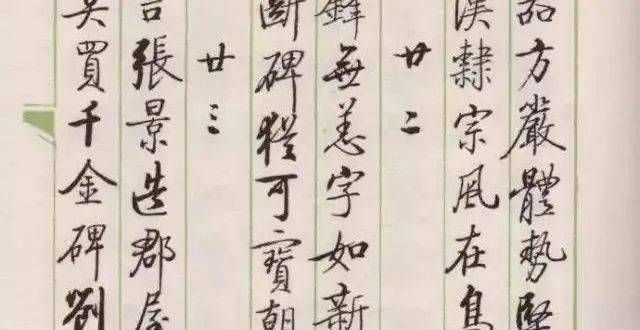 方嚴體勢堅
漢隸宗風在
廿二
鋒無恙字如新
斷碑猶可寶朝
廿三
張景造郡屋
買千金碑劉